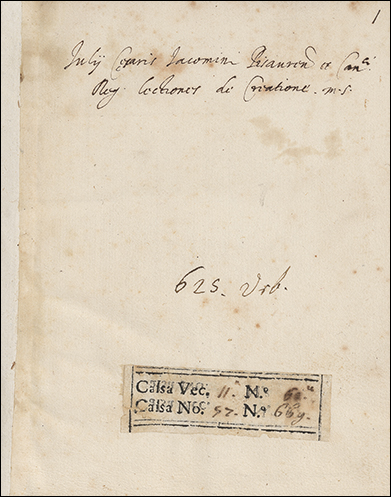 1
Julij Cęsaris Iacomini Pisauren. et Can.ci
Reg. lectiones de Creatione. m.s.
625. Urb.
Cassa Vec. 11. N.º
Cassa No. 57. N.º 669.